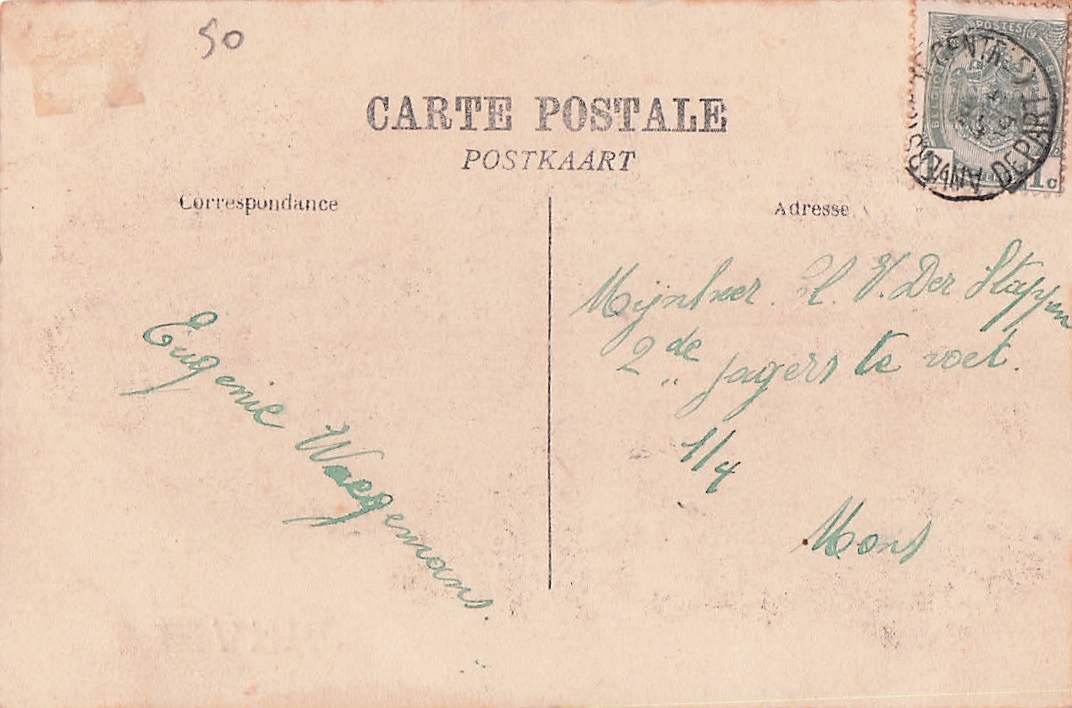 50
CARTE POSTALE
POSTKAART
Correspondance
Adresse
POSTES
ANVERS DEPART
1c
Mijnheer V. Der Stappen
2de jagers te voet.
1/4
Mons
Eugenie Waegemans